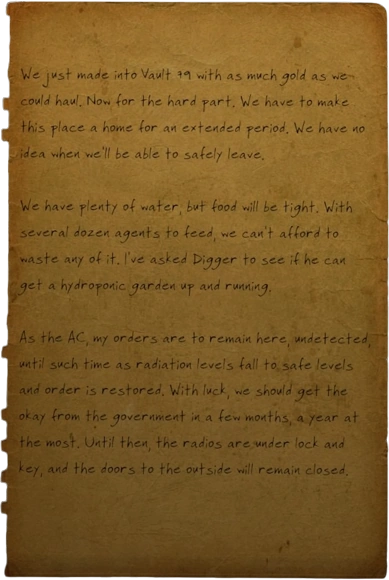 We just made into Vault 79 with as much gold as we
could haul. Now for the hard part. We have to make
this place a home for an extended period. We have no
idea when we'll be able to safely leave.
We have plenty of water, but food will be tight. With
several dozen agents to feed, we can't afford to
waste any of it. I've asked Digger to see if he can
get a hydroponic garden up and running.
As the AC, my orders are to remain here, undetected,
until such time as radiation levels fall to safe levels
and order is restored. With luck, we should get the
okay from the government in a few months, a year at
the most. Until then, the radios are under lock and
key, and the doors to the outside will remain closed.